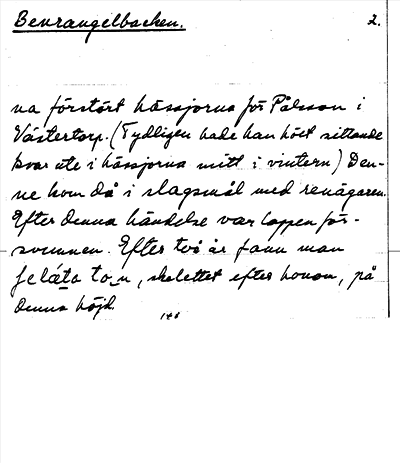 Benrangelbacken. 2.
na förstört hässjorna för Pålsson i
Västertorp. (Tydligen hade han höet sittande
kvar ute i hässjorna mitt i vintern) Den-
ne kom då i slagsmål med renägaren.
Efter denna händelse var lappen för-
svunnen. Efter två år fann man
felá̱ta to̱n, skelettet efter honom, på
denna höjd.